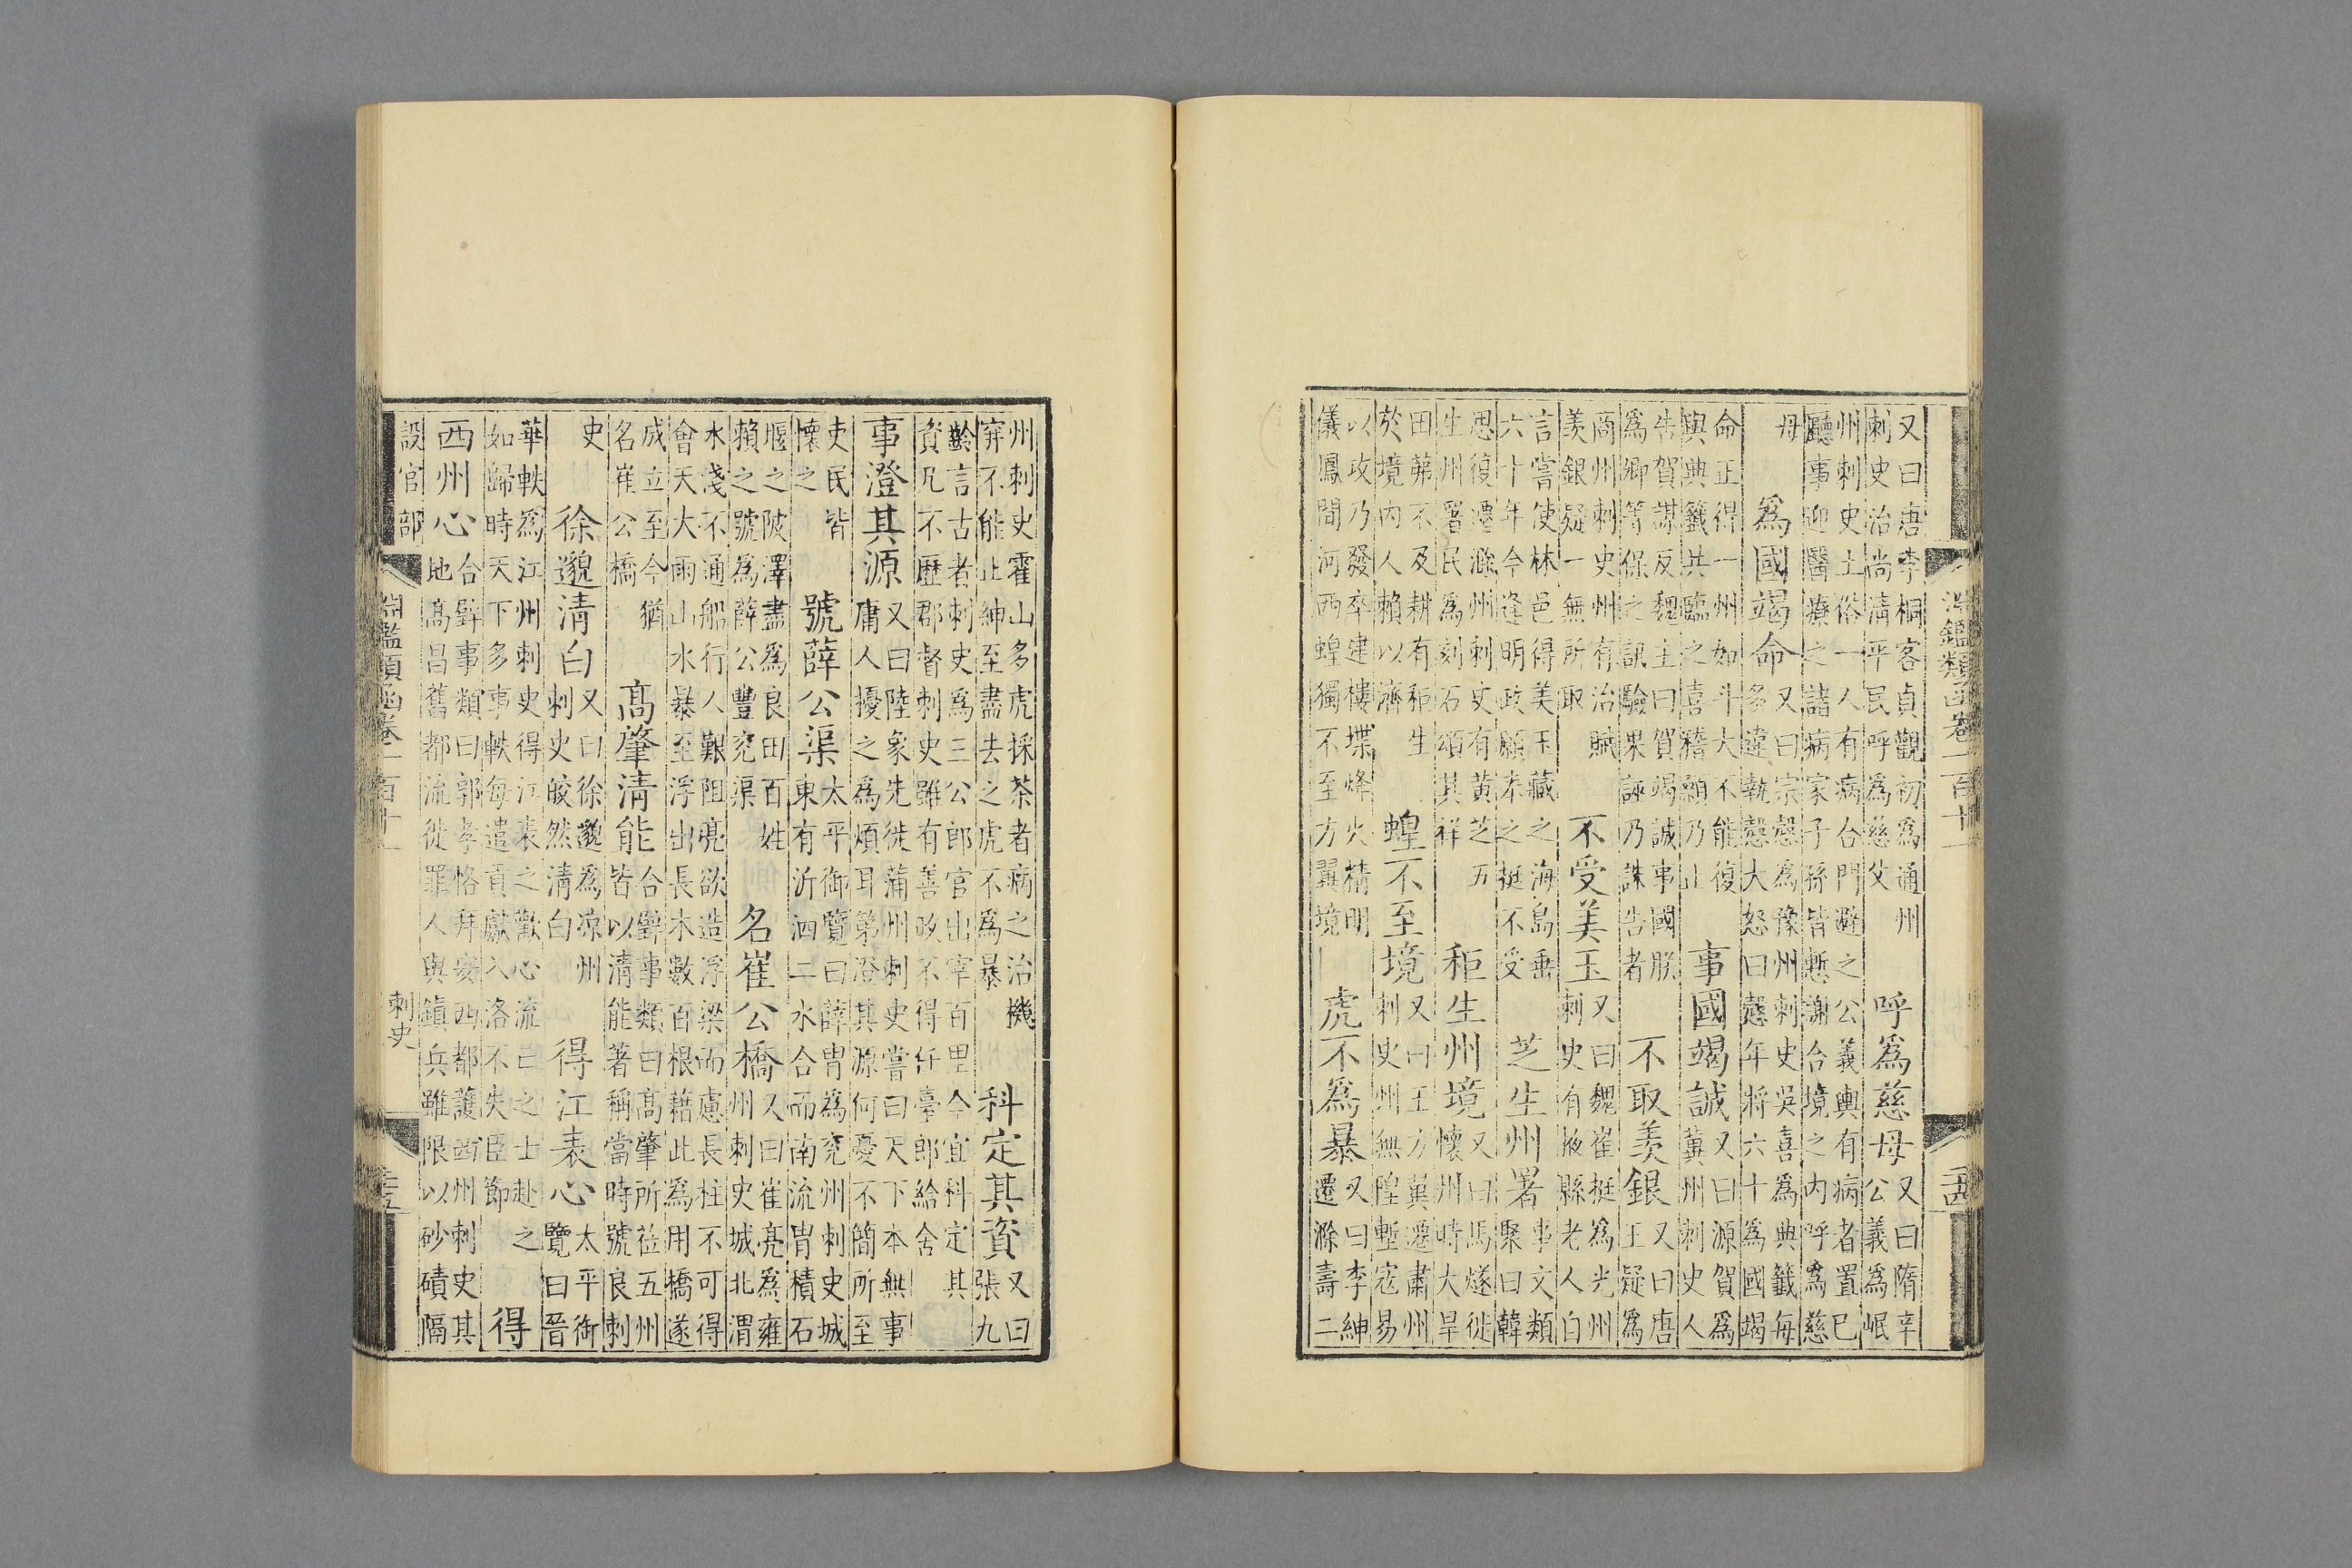 淵鑑類函卷一百十一
二十四
又曰唐李桐客貞觀初為通州
刺史治尚清平民呼為慈父
呼為慈母
又曰隋辛
公義為岷
州刺史土俗一人有病合門避之公義輿有病者置已
廳事迎醫療之諸病家子孫皆慙謝合境之內呼為慈
母
為國竭命
又曰宗慤為豫州刺史吳喜為典籤每
多違執慤大怒曰慤年將六十為國竭
命正得一州如斗大不能復
與典籤共臨之喜稽顙乃止
事國竭誠
又曰源賀為
冀州刺史人
告賀謀反魏主曰賀竭誠事國朕
為卿等保之訊驗果誣乃誅告者
不取羨銀
又曰唐
王疑為
商州刺史州有治賦
羨銀疑一無所取
不受美玉
又曰魏崔挺為光州
刺史有掖縣老人白
言嘗使林邑得美玉藏之海島垂
六十年今逢明政願奉之挺不受
芝生州署
事文類
聚曰韓
思復遷滁州刺史有黃芝五
生州署民為刻石頌其祥
秬生州境
又曰馬燧徙
懷州時大旱
田茀不及耕有秬生
於境內人賴以濟
蝗不至境
又曰王方翼遷肅州
刺史州無隍塹寇易
以攻乃發卒建樓堞烽火精明
儀鳳間河西蝗獨不至方翼境
虎不為暴
又曰李紳
遷滁壽二
州刺史霍山多虎採茶者病之治機
穽不能止紳至盡去之虎不為暴
科定其資
又曰
張九
齡言古者刺史為三公郎官出宰百里今宜科定其
資凡不歷郡督刺史雖有善政不得任臺郎給舍
事澄其源
又曰陸象先徙蒲州刺史嘗曰天下本無事
庸人擾之為煩耳第澄其源何憂不簡所至
吏民皆
懷之
號薛公渠
太平御覽曰薛冑為兗州刺史城
東有沂泗二水合而南流冑積石
堰之陂澤盡為良田百姓
賴之號為薛公豐兗渠
名崔公橋
又曰崔亮為雍
州刺史城北渭
水淺不通船行人艱阻亮欲造浮梁而慮長柱不可得
會天大雨山水暴至浮出長木數百根藉此為用橋遂
成立至今猶
名崔公橋
高肇清能
合璧事類曰高肇所莅五州
皆以清能著稱當時號良刺
史
徐邈清白
又曰徐邈為涼州
刺史皎然清白
得江表心
太平御
覽曰晉
華軼為江州刺史得江表之歡心流亡之士赴之
如歸時天下多事軼每遣貢獻入洛不失臣節
得
西州心
合璧事類曰郭孝恪拜安西都護西州刺史其
地高昌舊都流徙罪人與鎮兵雖限以砂磧隔
設官部
淵鑑類函卷一百十一
刺史
二十五